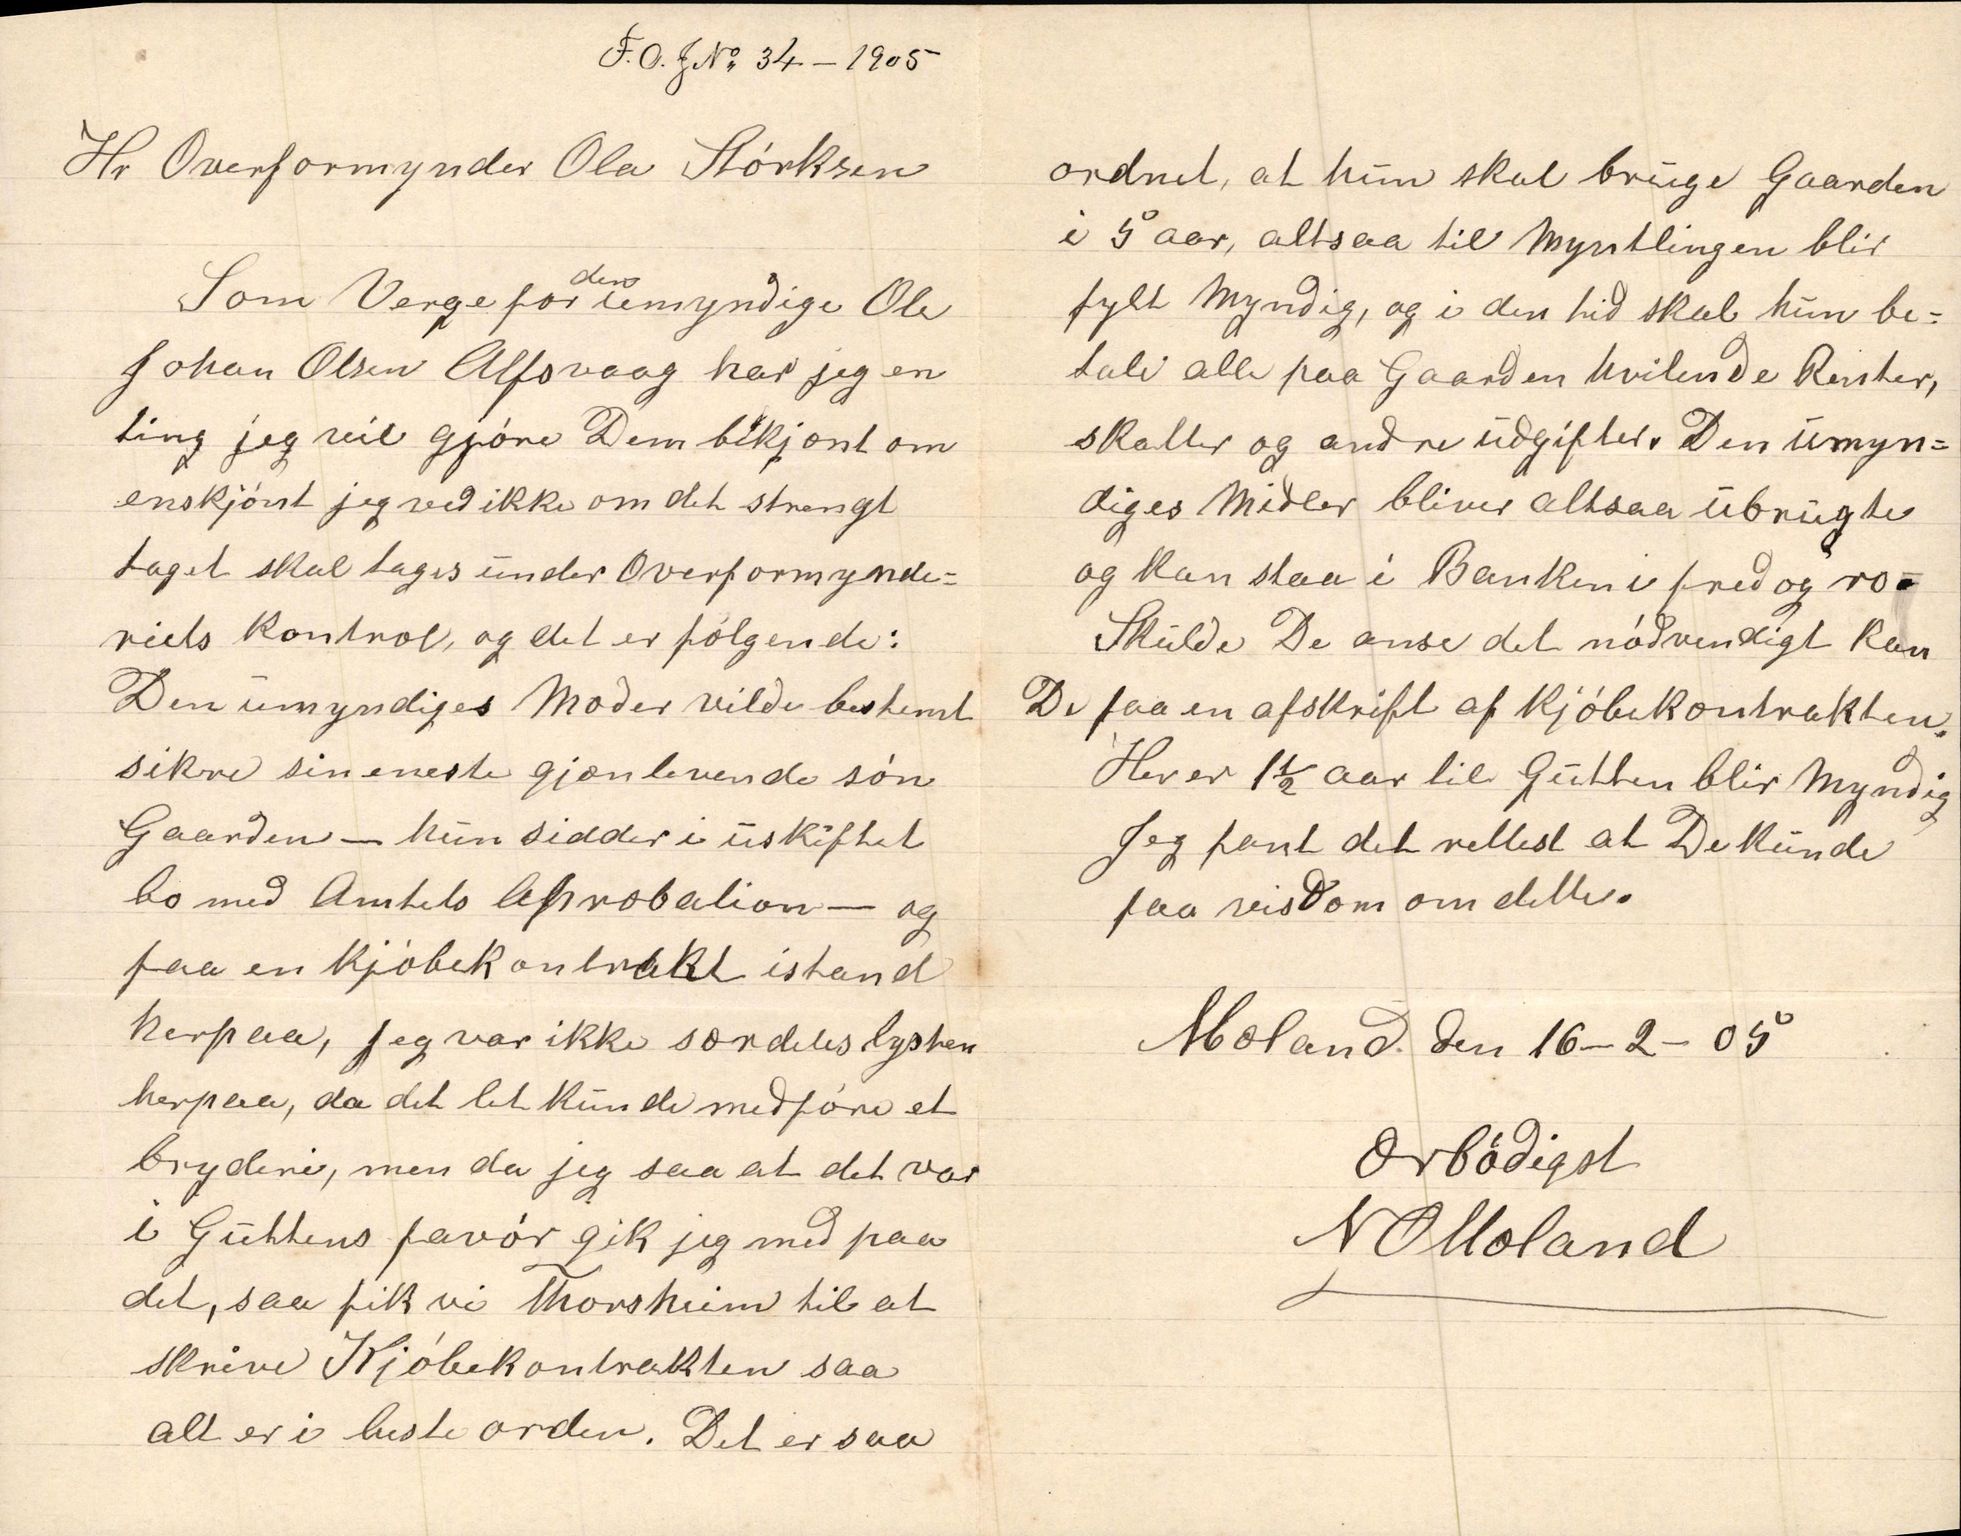 F.O.J No. 34 – 1905
Hr Overformynder Ola Störksen
Som Verge for den umyndige Ole
Johan Olsen Alfsvaag har jeg en
ting jeg vil gjöre Dem bekjent om
enskjönt jeg ved ikke om det strengt
taget skal tages under Overformynde=
riets Kontrol, og det er fölgende:
Den umyndiges Moder vilde bestemt
sikre sin eneste gjenlevende sön
Gaarden – hun sidder i uskiftet
bo med Amtets Aprobation – og
faa en Kjöbekontrakt istand
herpaa, Jeg var ikke særdeles lysten
herpaa, da det let kunde medföre et
bryderi, men da jeg saa at det var
i Guttens favör gik jeg med paa
det, saa fik vi Thorsheim til at
skrive Kjöbekontrakten saa
alt er i beste orden. Det er saa
ordnet, at hun skal bruge Gaarden
i 5 aar, altsaa til Myntlingen blir
fylt Myndig, og i den tid skal hun be=
tale alle paa Gaarden hvilende Renter,
skatter og andre udgifter. Den umyn=
diges Midler bliver altsaa ubrugte
og kan staa i Banken i fred og ro.
Skulde De anse det nödvendigt kan
De faa en afskrift af Kjöbekontrakten.
Her er 1½ aar til Gutten blir Myndig
Jeg fant det rettest at De kunde
faa visdom om dette.
Moland den 16 – 2 – 05
Ærbödigst
N O Moland